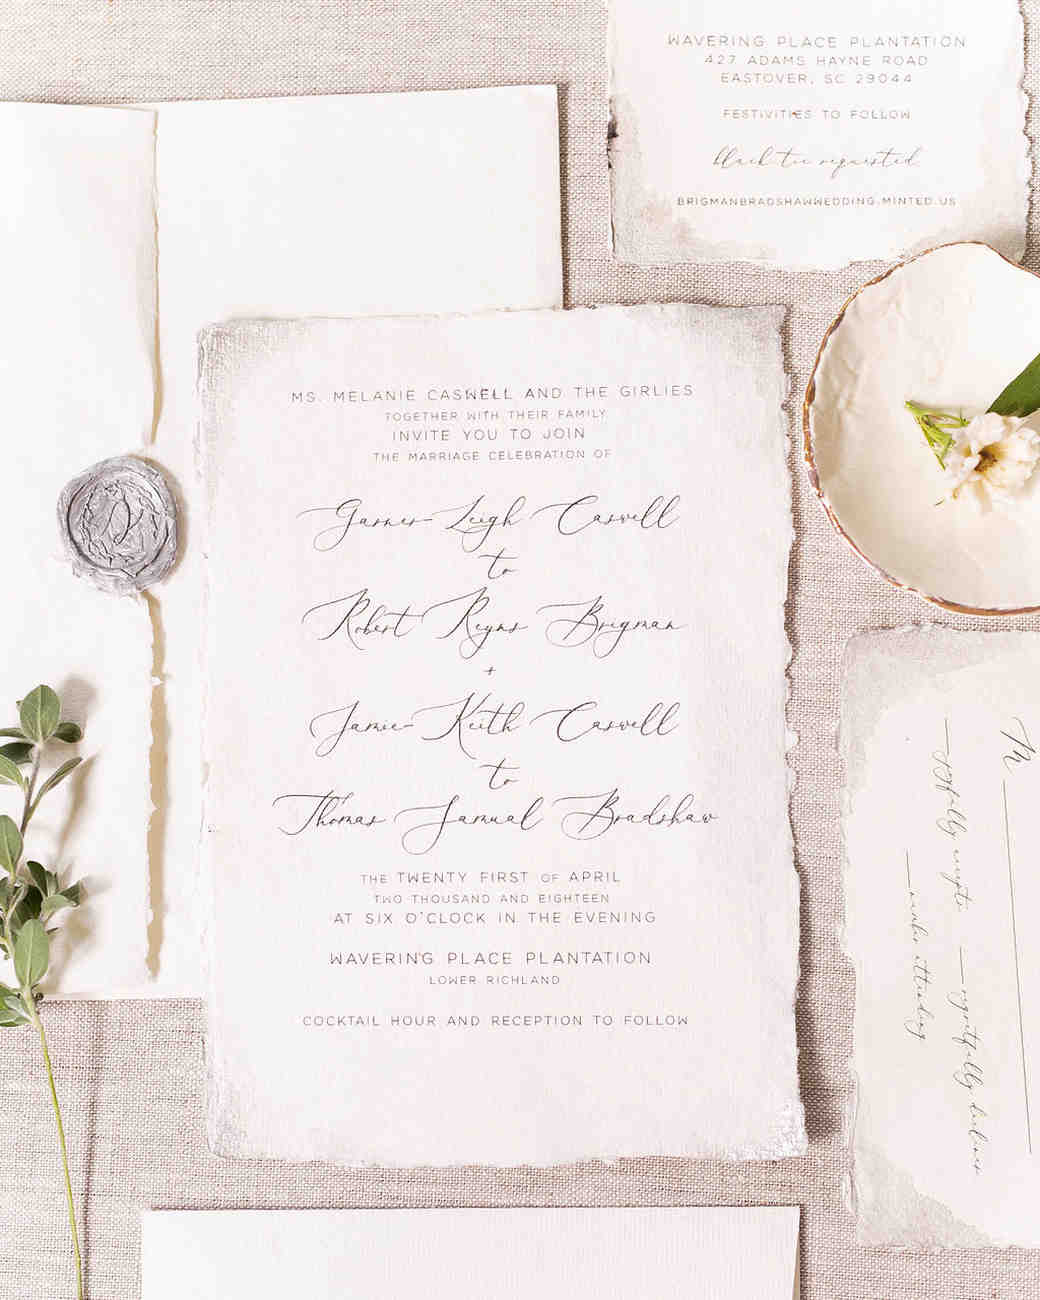 WAVERING PLACE PLANTATION
427 ADAMS HAYNE ROAD
EASTOVER, SC 29044
FESTIVITIES TO FOLLOW
black tie requested
BRIGMANBRADSHAWWEDDING.MINTED.US
MS. MELANIE CASWELL AND THE GIRLIES
TOGETHER WITH THEIR FAMILY
INVITE YOU TO JOIN
THE MARRIAGE CELEBRATION OF
Garner-Leigh Caswell
to
Robert Reyns Brigman
+
Jamie-Keith Caswell
to
Thomas Samual Bradshaw
THE TWENTY FIRST OF APRIL
TWO THOUSAND AND EIGHTEEN
AT SIX O'CLOCK IN THE EVENING
WAVERING PLACE PLANTATION
LOWER RICHLAND
COCKTAIL HOUR AND RECEPTION TO FOLLOW
M
joyfully accepts
regretfully declines
number attending